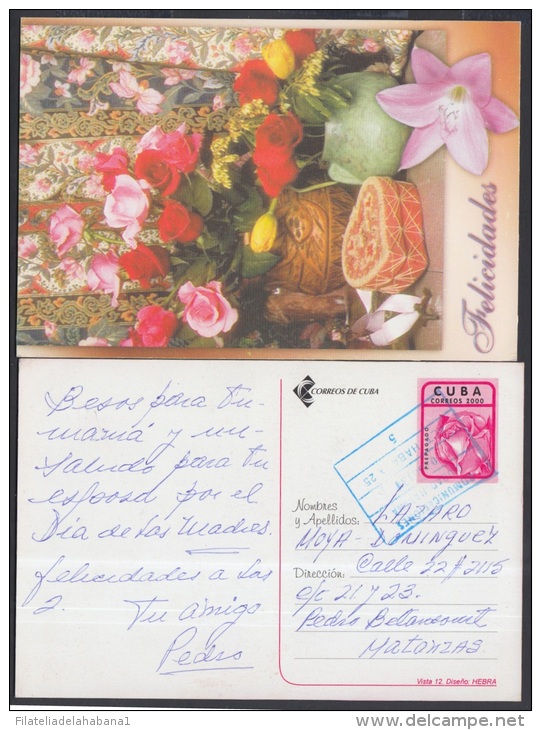 Felicidades
CORREOS DE CUBA
CUBA
CORREOS 2000
PREPAGADO
Besos para tu
mamá y un
saludo para tu
esposa por el
Día de las Madres.
felicidades a las
2.
Tu amigo
Pedro
Nombres
y Apellidos: LAZARO
MOYA - DOMINGUEZ
Dirección: Calle 22 # 2115
e/c 21 y 23.
Pedro Betancourt
MATANZAS
Vista 12. Diseño: HEBRA
©Filateliadelahabana1
www.delcampe.net